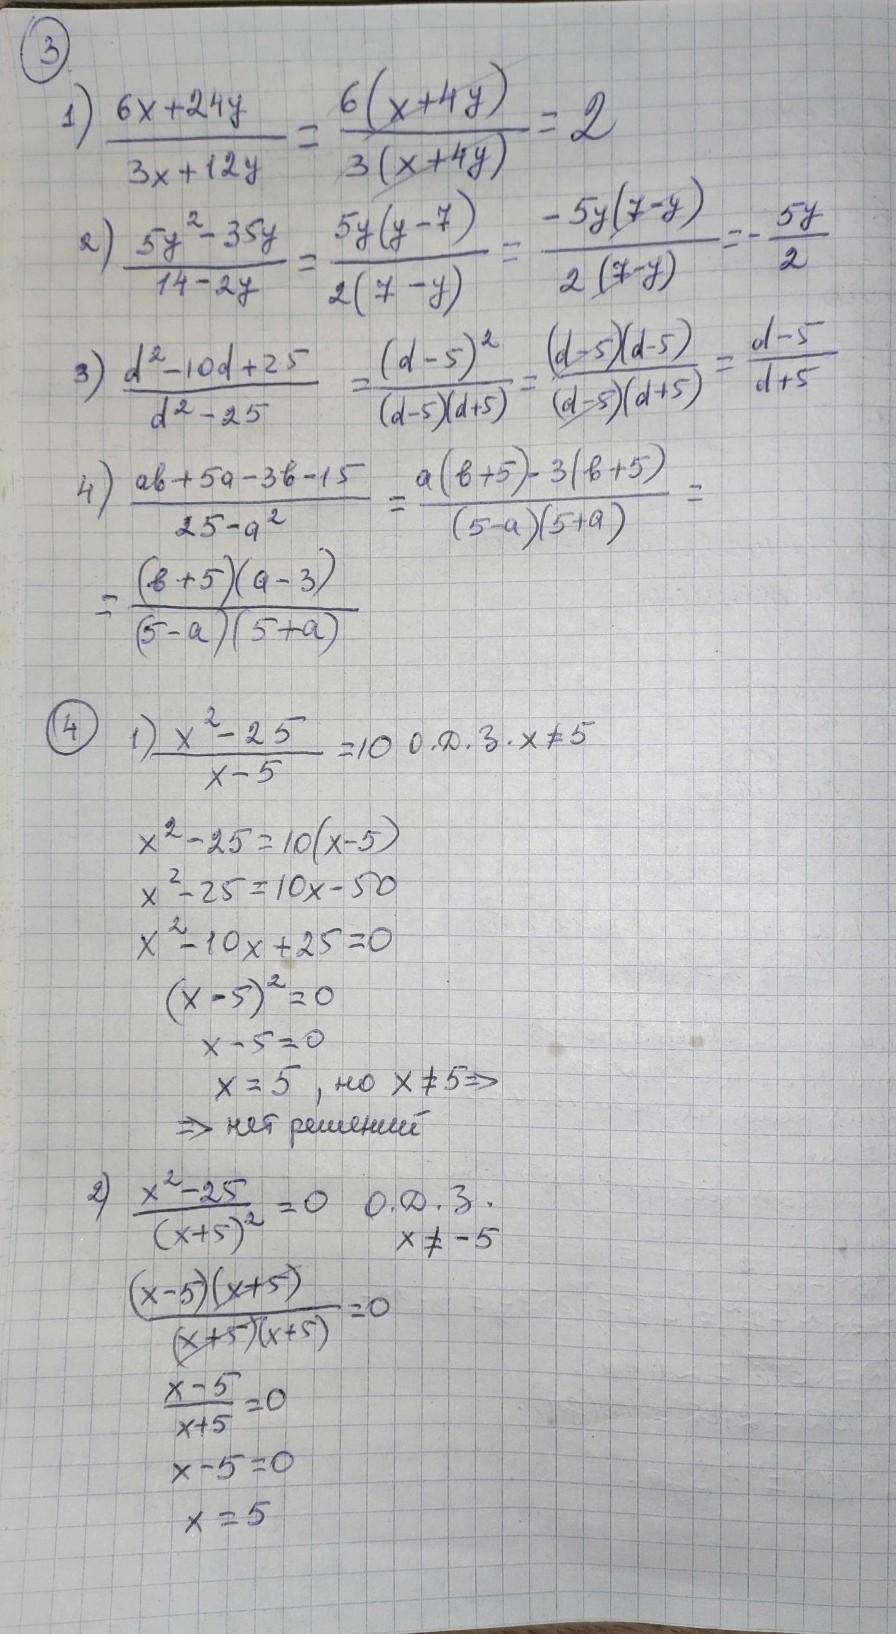 3
1) (6x+24y)/(3x+12y) = 6(x+4y)/3(x+4y) = 2
2) (5y²-35y)/(14-2y) = 5y(y-7)/2(7-y) = -5y(7-y)/2(7-y) = -5y/2
3) (d²-10d+25)/(d²-25) = (d-5)²/(d-5)(d+5) = (d-5)(d-5)/(d-5)(d+5) = (d-5)/(d+5)
4) (ab+5a-3b-15)/(25-a²) = (a(b+5)-3(b+5))/(5-a)(5+a) =
= (b+5)(a-3)/(5-a)(5+a)
4 1) (x²-25)/(x-5) =10 О.Д.З. x≠5
x²-25=10(x-5)
x²-25=10x-50
x²-10x+25=0
(x-5)²=0
x-5=0
x=5, но x≠5⇒
⇒ нет решений
2) (x²-25)/(x+5)² =0 О.Д.З.
x≠-5
(x-5)(x+5)/(x+5)(x+5) =0
(x-5)/(x+5) =0
x-5=0
x=5